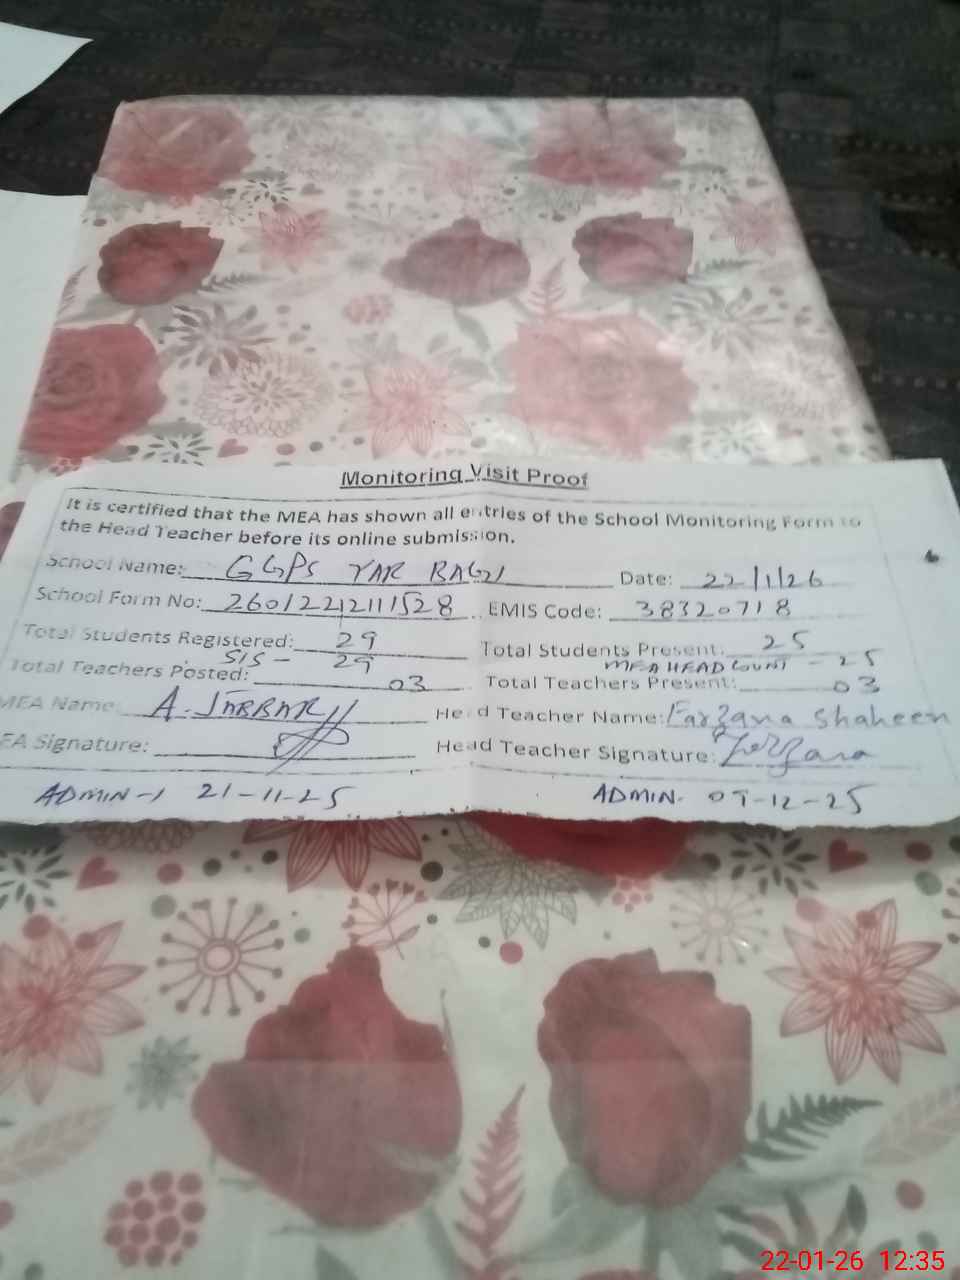 Monitoring Visit Proof
It is certified that the MEA has shown all entries of the School Monitoring Form to
the Head Teacher before its online submission.
School Name: GGPS YAR BAGH Date: 22/1/26
School Form No: 260122121111528 EMIS Code: 38320718
Total Students Registered: 29 Total Students Present: 25
SIS - 29 MEA HEAD COUNT - 25
Total Teachers Posted: 03 Total Teachers Present: 03
MEA Name: A. JABBAR Head Teacher Name: Farzana Shaheen
EA Signature: Head Teacher Signature: Farzana
ADMIN-1 21-11-25 ADMIN. 09-12-25
22-01-26 12:35